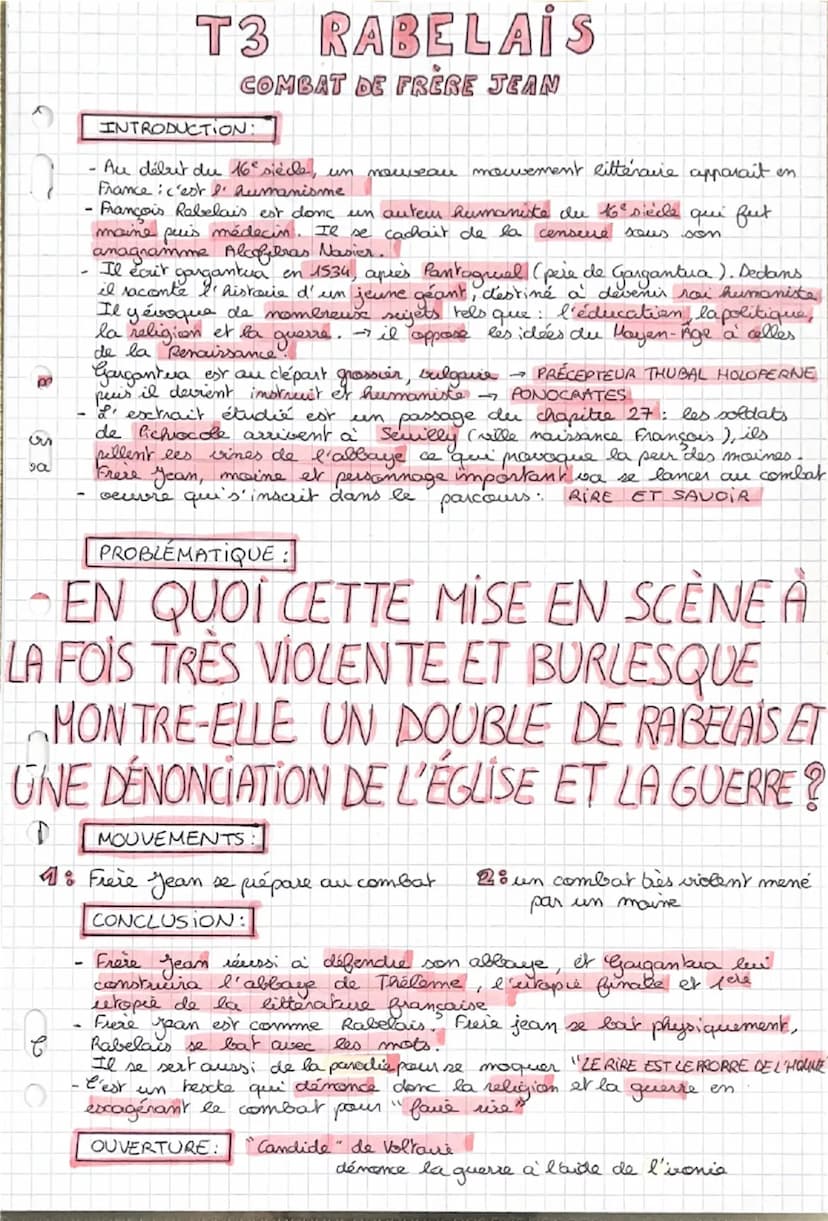 T3 RABELAIS
COMBAT DE FRÈRE JEAN
INTRODUCTION:
- Au début du 16e siècle, un nouveau mouvement littéraire apparait en
France : c'est l'humanisme
- François Rabelais est donc un auteur humaniste du 16e siècle qui fut
moine puis médecin. Il se cachait de la censure sous son
anagramme Alcofibras Nasier.
- Il écrit gargantua en 1534, après Pantagruel (père de Gargantua). Dedans
il raconte l'histoire d'un jeune géant, destiné à devenir roi humaniste
Il y évoque de nombreux sujets tels que : l'éducation, la politique,
la religion et la guerre. → il oppose les idées du Moyen-Âge à celles
de la Renaissance.
Gargantua est au départ grossier, vulgaire → PRÉCEPTEUR THUBAL HOLOFERNE
puis il devient instruit et humaniste → PONOCRATES
- L'extrait étudié est un passage du chapitre 27 : les soldats
de Pichocole arrivent à Seuilly (ville naissance François), ils
pillent les vines de l'abbaye ce qui provoque la peur des moines.
Frère Jean, moine et personnage important va se lancer au combat
- oeuvre qui s'inscrit dans le parcours : RIRE ET SAVOIR
PROBLÉMATIQUE :
EN QUOI CETTE MISE EN SCÈNE À
LA FOIS TRÈS VIOLENTE ET BURLESQUE
MONTRE-ELLE UN DOUBLE DE RABELAIS ET
UNE DÉNONCIATION DE L'ÉGLISE ET LA GUERRE ?
MOUVEMENTS :
1 : Frère Jean se prépare au combat 2 : un combat très violent mené
par un moine
CONCLUSION :
- Frère Jean réussi à défendre son abbaye, et Gargantua lui
construira l'abbaye de Thélème, l'utopie finale et 1ère
utopie de la littérature française
- Frère Jean est comme Rabelais. Frère jean se bat physiquement,
Rabelais se bat avec les mots.
Il se sert aussi de la parodie pour se moquer "LE RIRE EST LE PROPRE DE L'HOMME"
- C'est un texte qui dénonce donc la religion et la guerre en
exagérant le combat pour "faire rire"
OUVERTURE : "Candide" de Voltaire
dénonce la guerre à l'aide de l'ironie